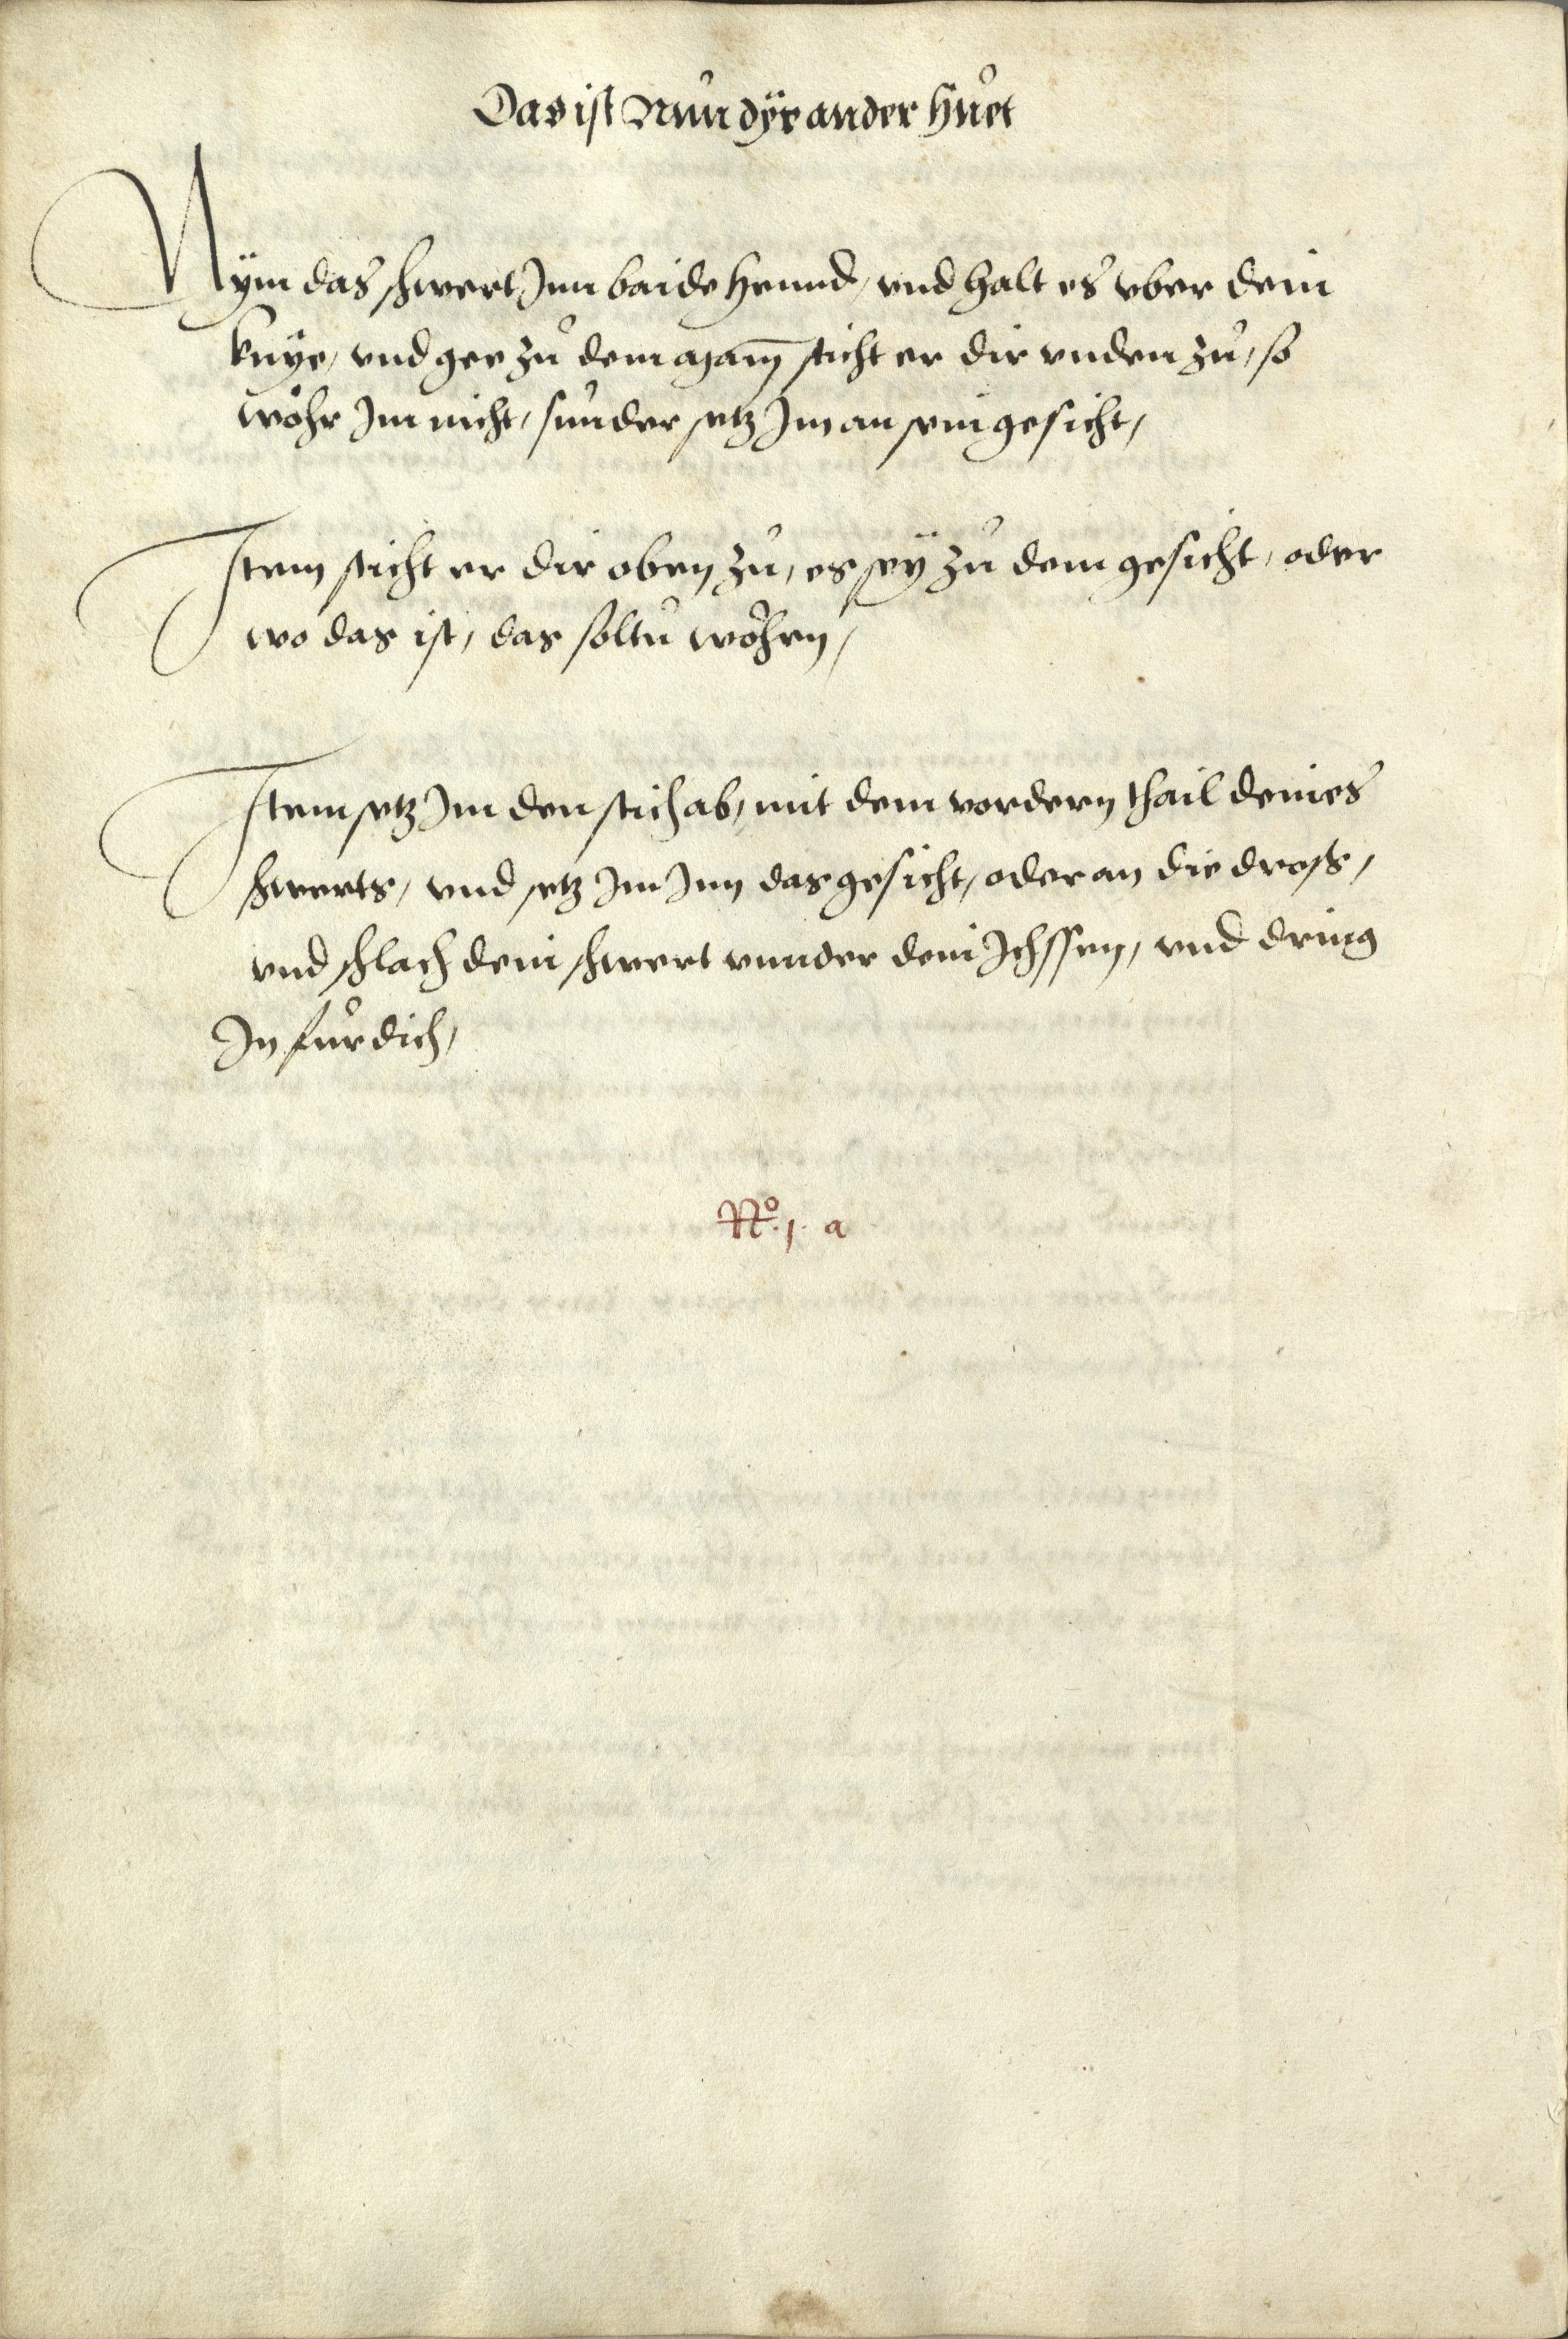 Das ist Nŭn dÿe ander Hŭet
Nÿm das schwert Jnn baide Hennd, vnd halt es vber dein
knÿe, vnd gee zŭ dem man̄ sticht er dir vnden zŭ, so
wöhr Jm nicht, sŭnder setz Jm an sein gesicht,
Jtem sticht er dir oben zŭ, es seÿ zŭ dem gesicht, oder
wo das ist, das soltŭ wöhren,
Jtem setz Jm den stich ab, mit dem vordern thail deines
schwerts, vnd setz Jm Jnn das gesicht, oder an die dross,
vnd schlach dein schwert vnnder dein Jchssen, vnd dring
Jn fŭr dich,
No. 1. a